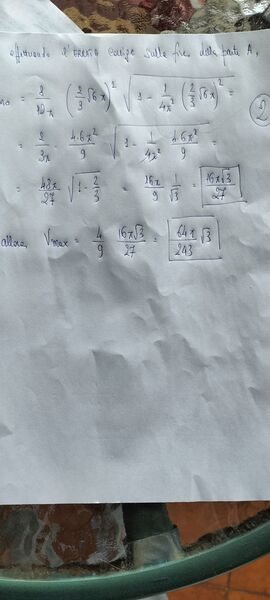 effettuando l'ERRATA corrige sulla fine della parte A,
= \frac{2}{3π} (\frac{2}{3}√6 π)^2 \sqrt{1 - \frac{1}{4π^2} (\frac{2}{3}√6 π)^2} =
(2)
= \frac{2}{3π} · \frac{4·6π^2}{9} \sqrt{1 - \frac{1}{4π^2} \frac{4·6π^2}{9}} =
= \frac{48π}{27} \sqrt{1 - \frac{2}{3}} = \frac{16π}{9} \frac{1}{√3} = \frac{16π√3}{27}
allora V_{max} = \frac{4}{9} \frac{16π√3}{27} = \frac{64π}{243} √3